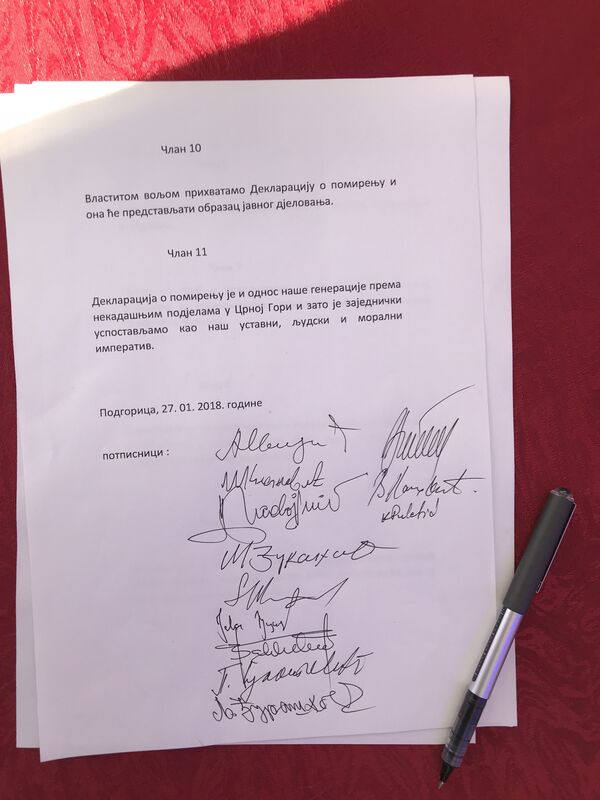 Члан 10
Властитом вољом прихватамо Декларацију о помирењу и
она ће представљати образац јавног дјеловања.
Члан 11
Декларација о помирењу је и однос наше генерације према
некадашњим подјелама у Црној Гори и зато је заједнички
успостављамо као наш уставни, људски и морални
императив.
Подгорица, 27. 01. 2018. године
потписници :